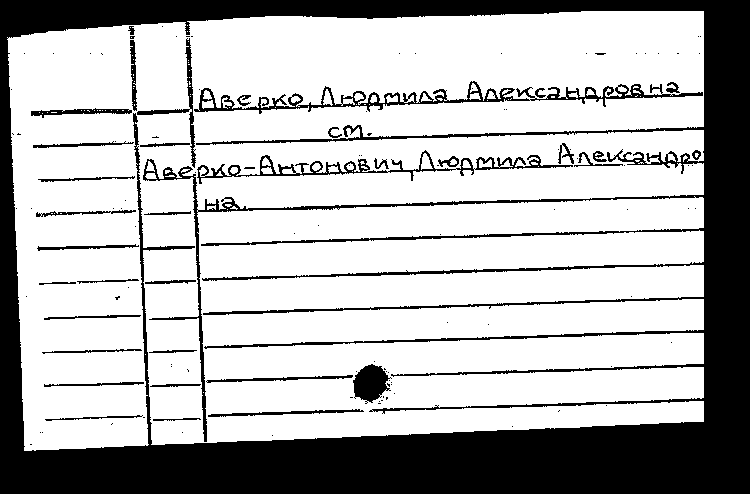 Аверко, Людмила Александровна
см.
Аверко-Антонович, Людмила Александро
на.